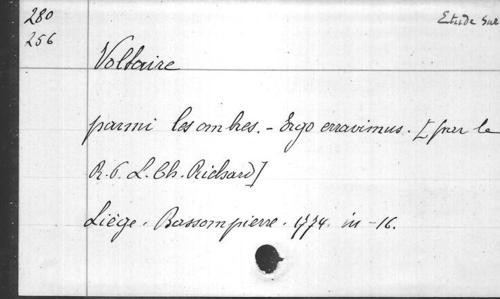 280
256
Etude sur
Voltaire
parmi les ombres. - Ergo erravimus. [par le
R. P. L. Ch. Richard]
Liège. Bassompierre. 1774. in-16.